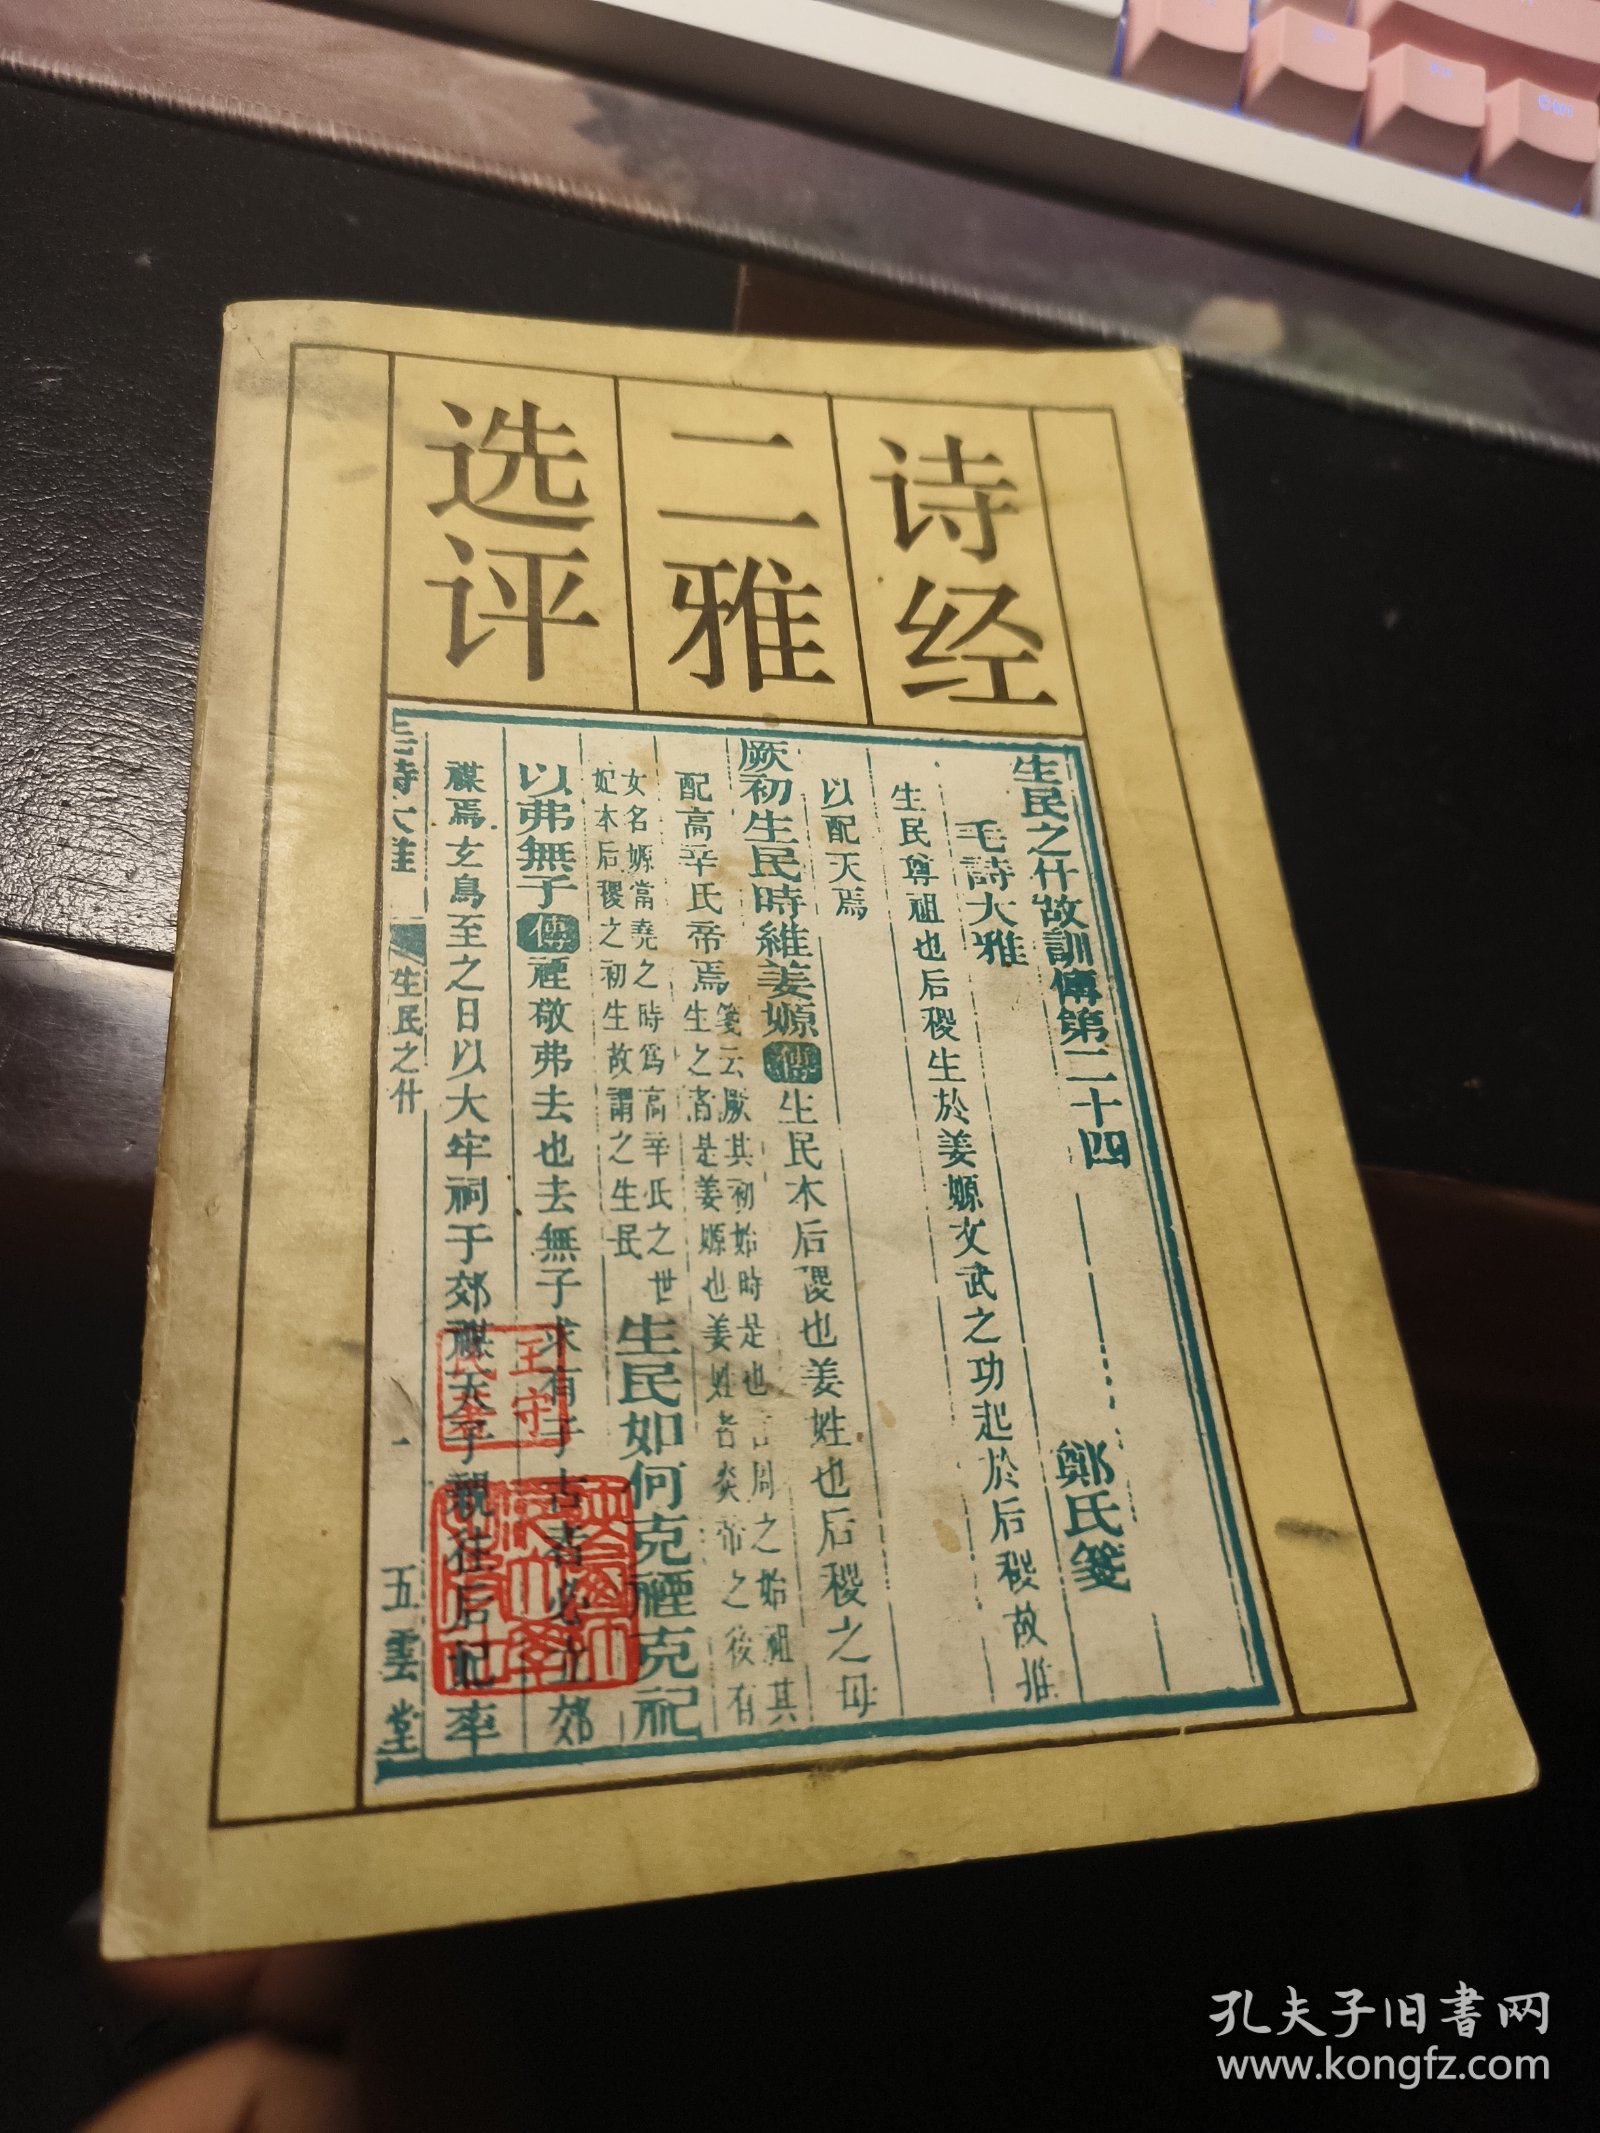 诗经
二雅
选评
生民之什故訓傳第二十四
毛詩大雅
鄭氏箋
生民尊祖也后稷生於姜嫄文武之功起於后稷故推
以配天焉
厥初生民時維姜嫄
傳
生民本后稷也姜姓也后稷之母
配高辛氏帝焉
箋云厥其初始時是也言周之始祖其
生之者是姜嫄也姜姓者炎帝之後有
女名嫄當堯之時爲高辛氏之世
妃本后稷之初生故謂之生民
生民如何克禋克祀
以弗無子
傳
禋敬弗去也去無子求有子古者必立郊
禖焉玄鳥至之日以大牢祠于郊禖天子親往后妃率
毛詩大雅
生民之什
一
五雲堂
孔夫子旧书网
www.kongfz.com